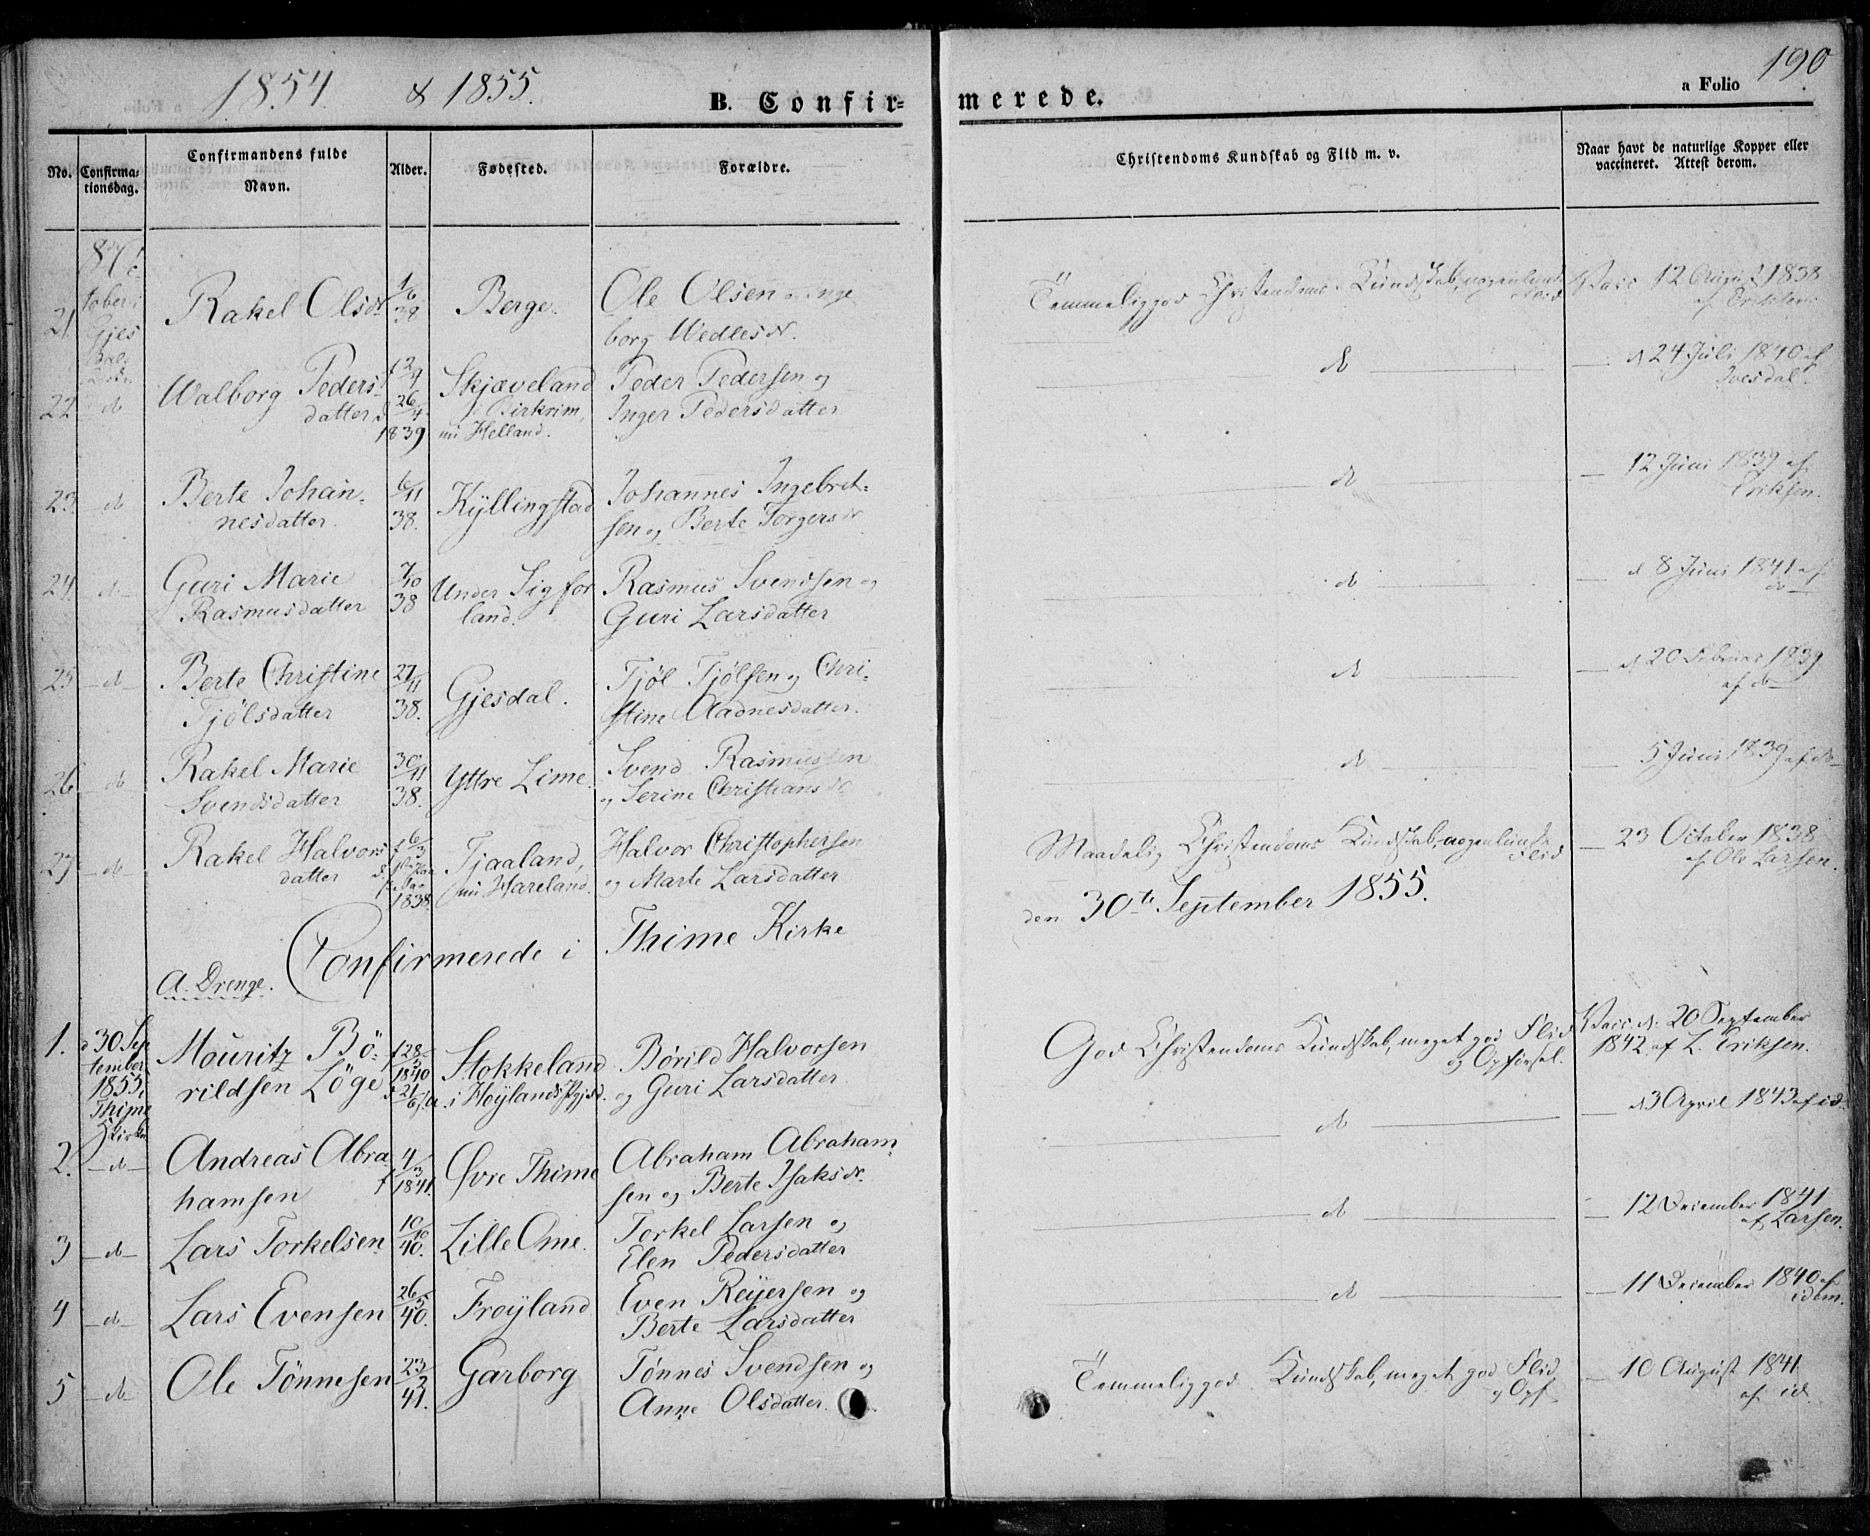 1854 & 1855.
B. Confirmerede.
a Folio 190
No.
Confirmationsdag.
Confirmandens fulde Navn.
Alder.
Fødested.
Forældre.
Christendoms Kundskab og Flid m. v.
Naar havt de naturlige Kopper eller vaccineret. Attest derom.
21. Rakel Olsdr 1/6 38 Berge. Ole Olsen og Inge
borg Wedlesdr. Temmelig god Christendoms Kundskab, nogenlunde Flid Vacc. 12 August 1838
af Eriksen.
22. d Walborg Peders
datter 26/4 1839 Skjæveland
i Birkrim,
nu Helland. Peder Pedersen og
Inger Pedersdatter d d 24 Juli 1840 af
Ivesdal.
23. d Berte Johan-
nesdatter. 6/11 38. Kyllingstad Johannes Ingebret-
sen og Berte Torgersdr d 12 Juni 1839 af
Eriksen.
24. d Guri Marie
Rasmusdatter 7/10 38 Under Sigfor
land. Rasmus Svendsen og
Guri Larsdatter d d 8 Juni 1841 af
do
25. d Berte Christine
Tjølsdatter 27/11 38. Gjesdal. Tjøl Tjølsen og Chri-
stine Aadnesdatter. d d 20 Februar 1839
af do
26. d Rakel Marie
Svendsdatter 30/11 38. Yttre Lime. Svend Rasmussen
og Serine Christiansdr d 5 Juni 1839 af do
27. d Rakel Halvors
datter 6/3 1838. Tjaaland,
nu Hareland. Halvor Christophersen
og Marte Larsdatter Maadelig Christendoms Kundskab, nogenlunde Flid 23 October 1838
af Ole Larsen.
Confirmerede i Thime Kirke den 30te September 1855.
A. Drenge.
1. d 30 Sep
tember
1855,
Thime
Kirke Mouritz Bö-
rildsen Löge 28/ 1840 Stokkeland
i Høylands Prgjd. Börild Halvorsen
og Guri Larsdatter God Christendoms Kundskab, meget god Flid
og Opførsel. Vacc. d. 20 September
1842 af L. Eriksen.
2. d Andreas Abra
hamsen 4/3 1841. Øvre Thime Abraham Abraham
sen og Berte Isaksdr. d d 3 April 1843 af id.
3 d Lars Torkelsen 10/10 40. Lille Ome. Torkel Larsen og
Elen Pedersdatter d 12 December 1841
af Larsen.
4 d Lars Evensen 26/5 40. Frøyland Even Reijersen og
Berte Larsdatter d 11 December 1840 af
idem.
5 d Ole Tönnesen 23/2 41. Garborg Tønnes Svendsen og
Anne Olsdatter. Temmelig god Kundskab, meget god Flid
og Opf. 10 August 1841
af id.